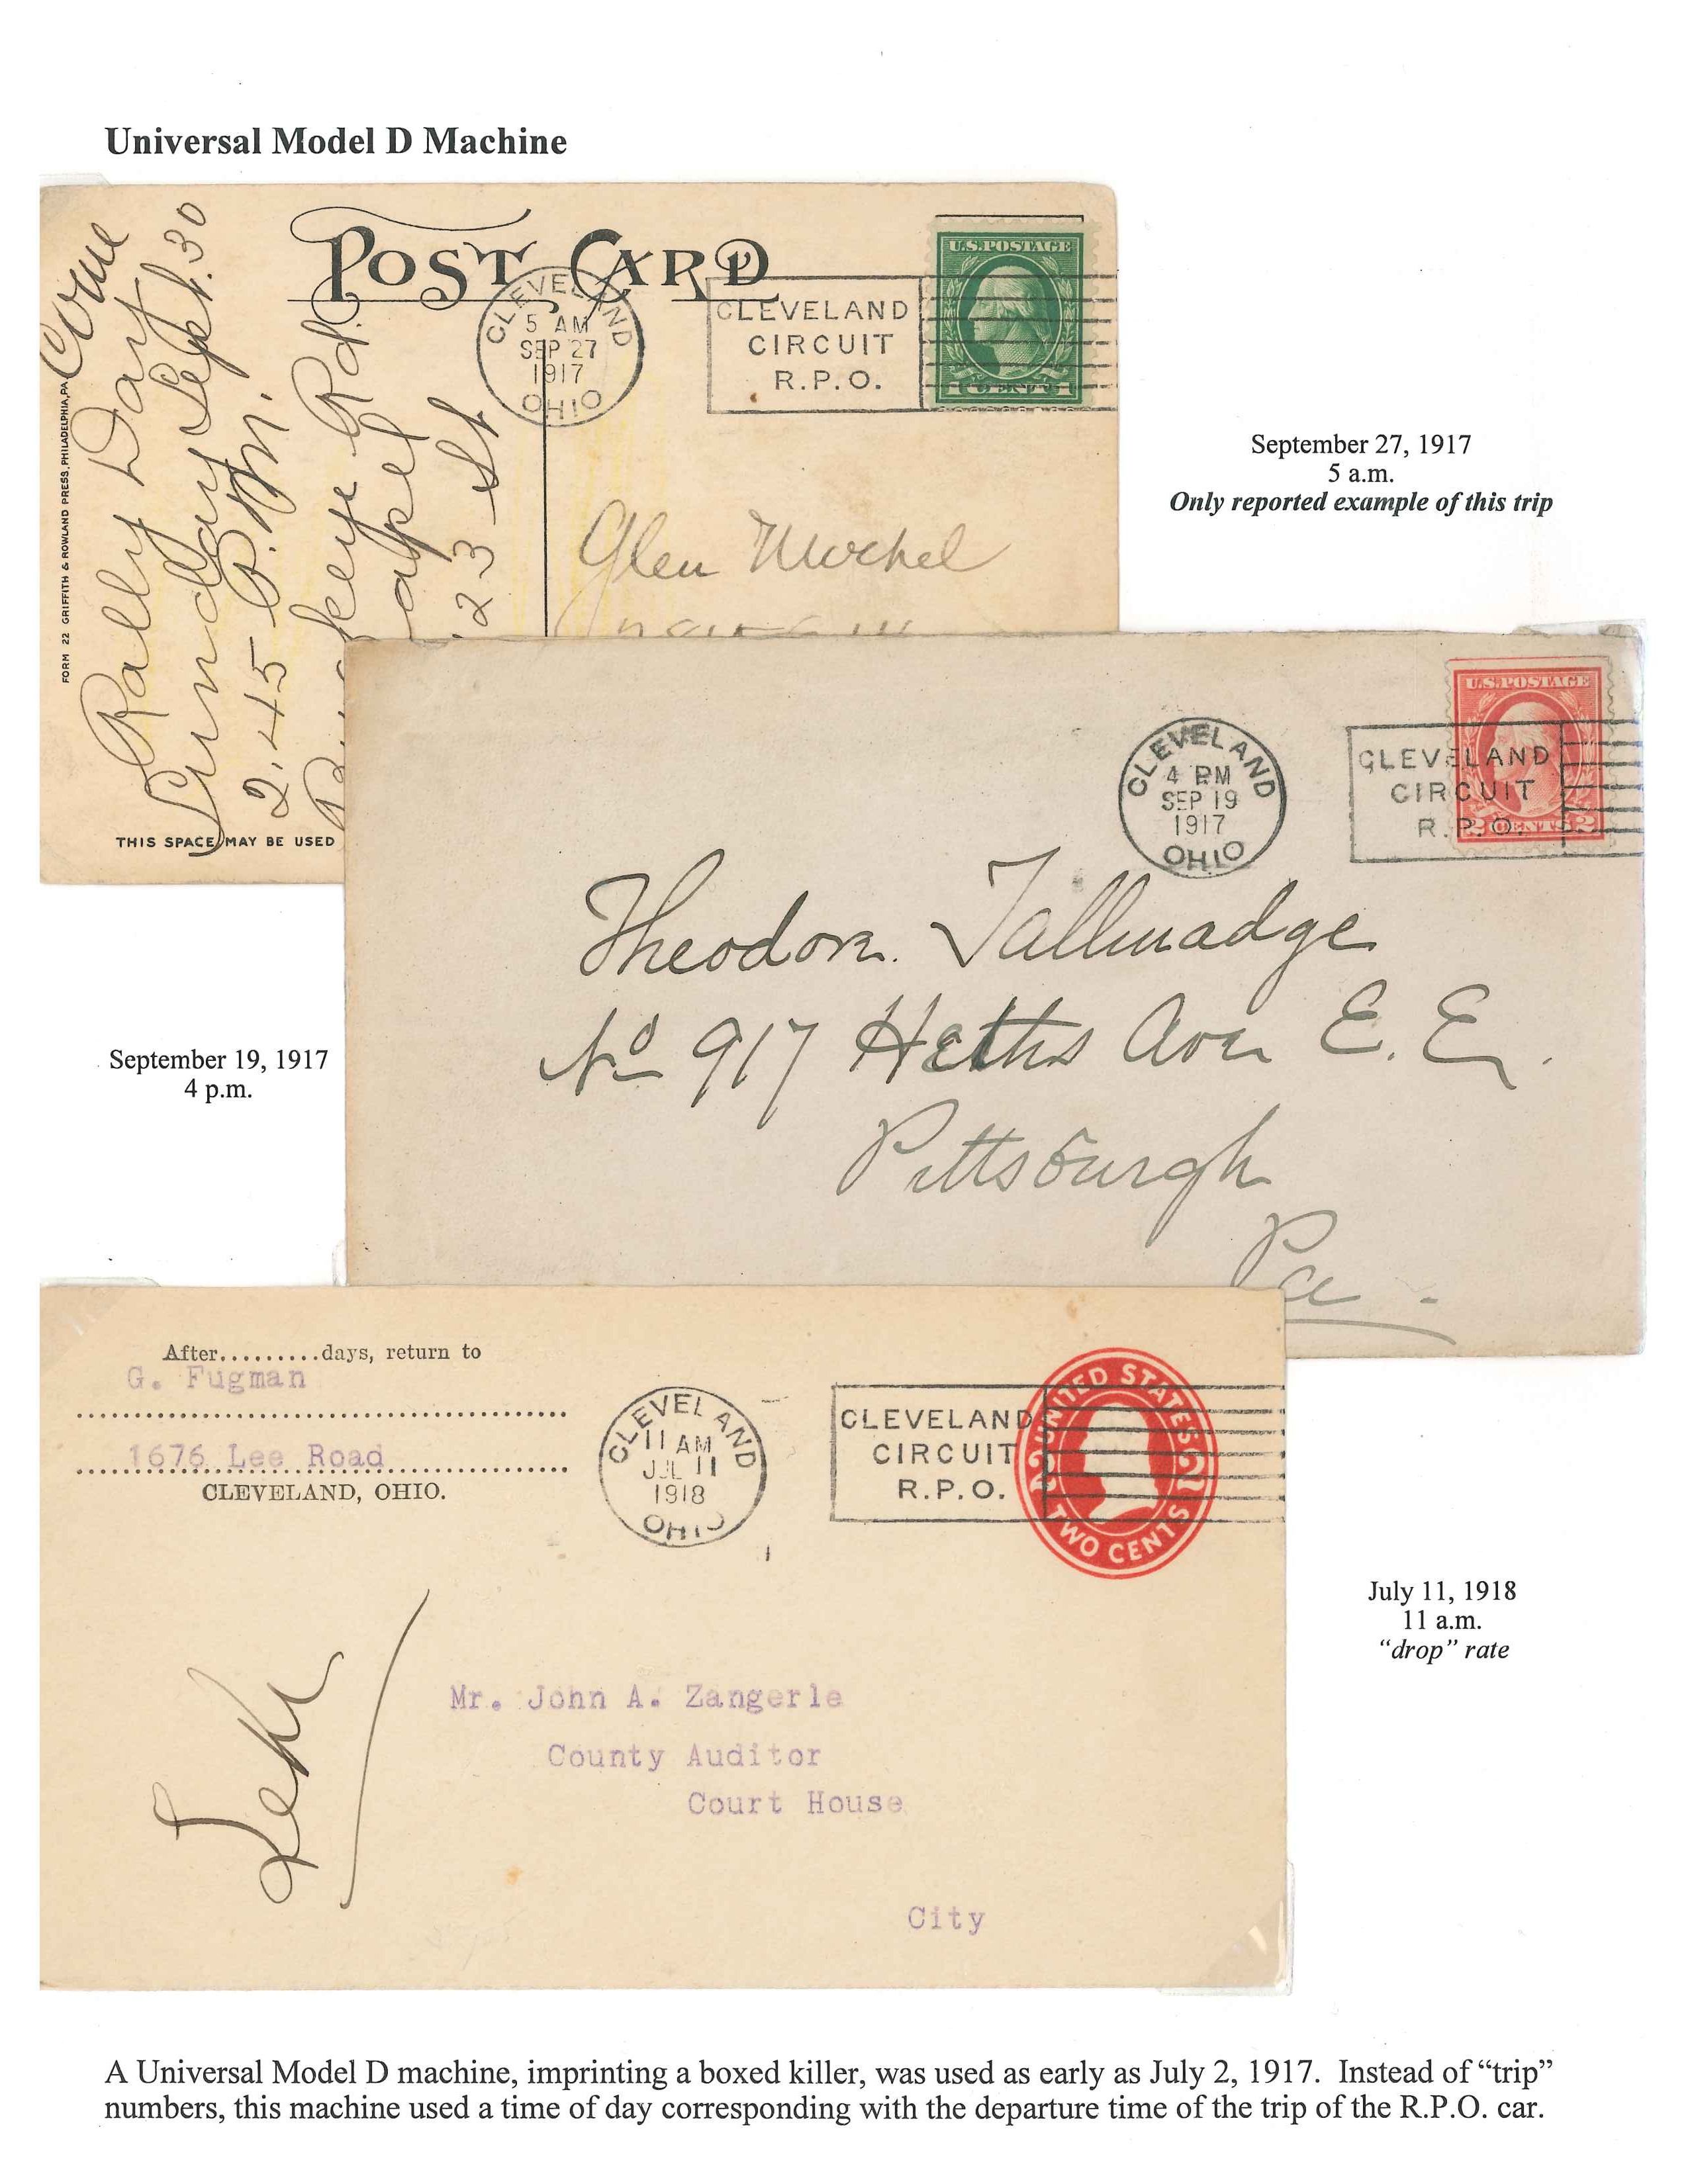 Universal Model D Machine
POST CARD
CLEVELAND
5 AM
SEP 27
1917
OHIO
CLEVELAND
CIRCUIT
R.P.O.
U.S.POSTAGE
1 CENT 1
FORM 22 GRIFFITH & ROWLAND PRESS, PHILADELPHIA, PA.
Come
Rally Day
Sunday Sept. 30
2.45 P.M.
Rd.
123 St
Glen
THIS SPACE MAY BE USED
September 27, 1917
5 a.m.
Only reported example of this trip
CLEVELAND
4 PM
SEP 19
1917
OHIO
CLEVELAND
CIRCUIT
R.P.O.
U.S.POSTAGE
2 CENTS 2
Theodore Tallmadge
No 917 Heths Ave E. E.
Pittsburgh
Pa.
September 19, 1917
4 p.m.
After.........days, return to
G. Fugman
1676 Lee Road
CLEVELAND, OHIO.
CLEVELAND
11 AM
JUL 11
1918
OHIO
CLEVELAND
CIRCUIT
R.P.O.
UNITED STATES
2 2
TWO CENTS
Mr. John A. Zangerle
County Auditor
Court House
City
July 11, 1918
11 a.m.
“drop” rate
A Universal Model D machine, imprinting a boxed killer, was used as early as July 2, 1917. Instead of “trip”
numbers, this machine used a time of day corresponding with the departure time of the trip of the R.P.O. car.